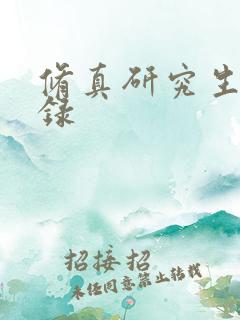 脩真研究生
録
招接招
未经同意禁止转载